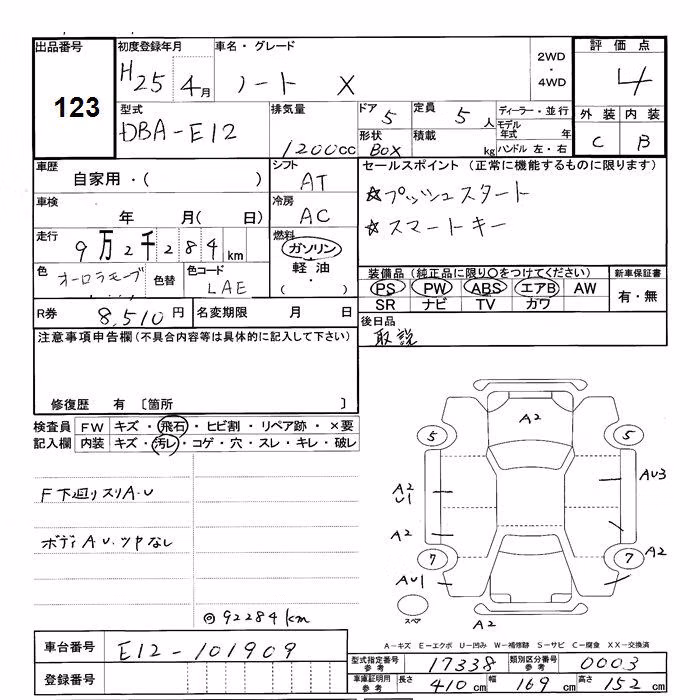 出品番号 123
初度登録年月 H25 4月
車名・グレード ノート X
2WD・4WD
評価点 4
型式 DBA-E12
排気量 1200cc
ドア 5
形状 BOX
定員 5人
積載 kg
ディーラー・並行
モデル年式 年
ハンドル 左・右
外装 C
内装 B
車歴 自家用・( )
シフト AT
セールスポイント (正常に機能するものに限ります)
☆プッシュスタート
☆スマートキー
車検 年 月( 日)
冷房 AC
走行 9万2千284km
燃料 ガソリン・軽油・( )
色 オーロラモーブ
色替
色コード LAE
装備品 (純正品に限り○をつけてください)
新車保証書 有・無
PS PW ABS エアB AW
SR ナビ TV カワ
R券 8,510円
名変期限 月 日
後日品 取説
注意事項申告欄 (不具合内容等は具体的に記入して下さい)
修復歴 有 〔箇所 〕
検査員記入欄
FW キズ・飛石・ヒビ割・リペア跡・×要
内装 キズ・汚レ・コゲ・穴・スレ・キレ・破レ
F下廻りスリA.U
ボディAU.ツヤなし
◎92284km
A2
5
5
A2
U1
AU3
A2
7
7
A2
AU1
スペア
A2
A-キズ E-エクボ U-凹み W-補修跡 S-サビ C-腐食 XX-交換済
車台番号 E12-101909
登録番号
型式指定番号 参考 17338
類別区分番号 参考 0003
車庫証明用 参考 長さ 410cm 幅 169cm 高さ 152cm